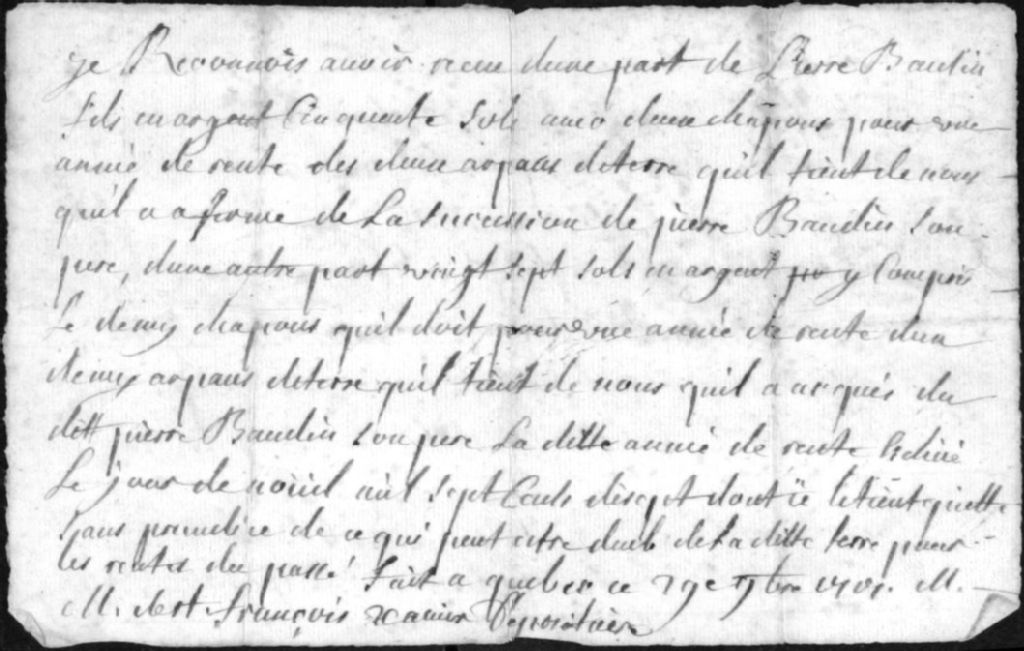 je Reconnois auvoir receu dune part de Pierre Baudin
fils en argent Cinquante sols avec deux chapons pour une
année de rente des deux arpans de terre qu'il tient de nous
qu'il a aferme de La sucession de pierre Baudin son
pere, dune autre part vingt sept sols en argent y Compris
Le demy chapons quil doit pour une année de rente dun
demy arpans de terre qu'il tient de nous quil a arqués du
dit pierre Baudin son pere La ditte année de rente
Le jour de nouil mil sept Cents disept dont je le tient quitte
sans preiudice de ce qui peut estre dub de La ditte terre pour
les rentes du passé fait a quebec ce 29e
M. de st françois xavier Depositaire